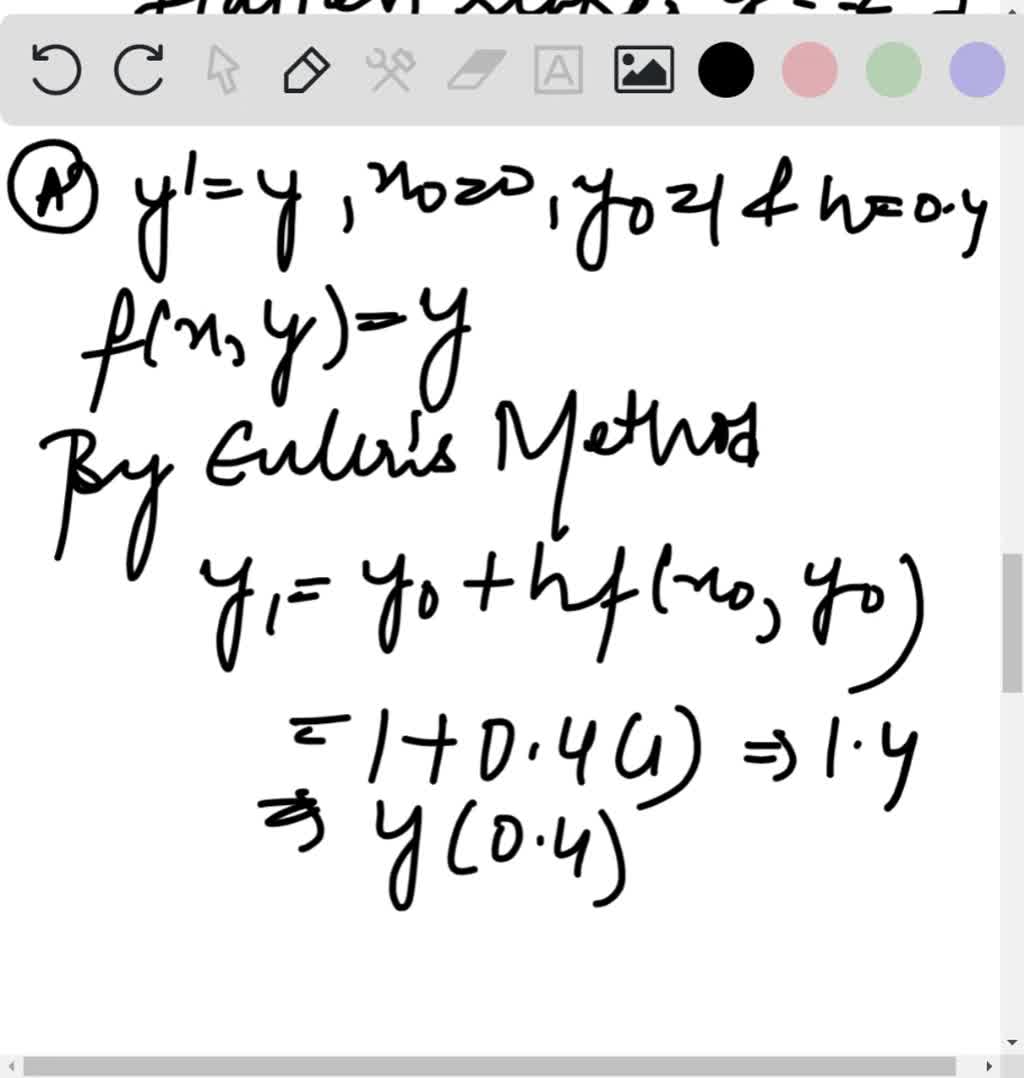 A y' = y, x₀=0, y₀=1 & h=0.4
f(x, y) = y
By Euler's Method
y₁ = y₀ + hf(x₀, y₀)
= 1 + 0.4(1) ⇒ 1.4
⇒ y(0.4)